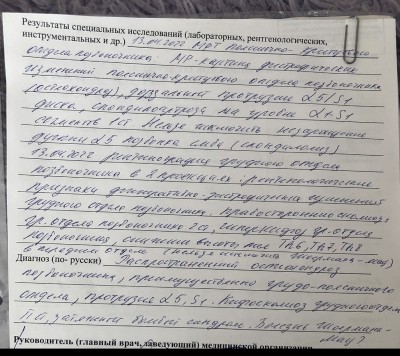 Результаты специальных исследований (лабораторных, рентгенологических,
инструментальных и др.) 13.04.2022 МРТ пояснично-крестцового
отдела позвоночника: МР-картина дистрофических
изменений пояснично-крестцового отдела позвоночника
(остеохондроз), дорзальной протрузии L5/S1
диска, спондилоартроза на уровне L4-S1
сегментов 1ст. Нельзя исключить незаращение
дужки L5 позвонка слева (спондилолиз)
13.04.2022 рентгенография грудного отдела
позвоночника в 2 проекциях: рентгенологические
признаки дегенеративно-дистрофических изменений
грудного отдела позвоночника. Правосторонний сколиоз
гр. отдела позвоночника 2ст, гр. отдел
позвоночника, снижены высоты тел Th6, Th7, Th8
в отделе
Диагноз (по- русски) Распространенный остеохондроз
позвоночника, преимущественно грудо-поясничного
отдела, протрузия L5, S1. Кифосколиоз грудного отдела
II ст, затяжной болевой синдром. Болезнь Шоермана-
Мау?
Руководитель (главный врач, заведующий) медицинской организации